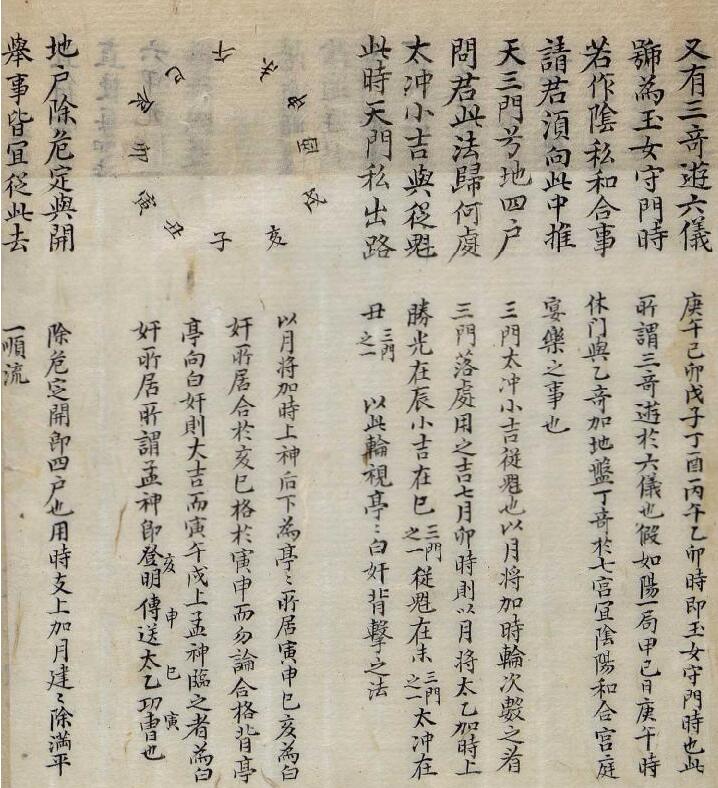 又有三竒遊六儀
號為玉女守門時
若作陰私和合事
請君須向此中推
天三門兮地四户
問君此法歸何處
太冲小吉與從魁
此時天門私出路
午
未
申
酉
戌
亥
子
丑
寅
卯
辰
巳
地户除危定與開
舉事皆宜從此去
庚午己卯戊子丁酉丙午乙卯時即玉女守門時也此
所謂三竒遊於六儀也假如陽一局甲己日庚午時
休门與乙竒加地盤丁竒於七宮宜陰陽和合宮庭
宴樂之事也
三門太冲小吉從魁也以月將加時輪次數之看
三門落處用之吉七月卯時則以月將太乙加時上
勝光在辰小吉在巳三門之一從魁在未三門之一太冲在
丑三門之一 以此輪視亭〻白奸背擊之法
以月將加時上神后下為亭〻所居寅申巳亥為白
奸所居合於亥巳格於寅申而勿論合格背亭
亭向白奸則大吉而寅午戌上孟神臨之者為白
奸所居所謂孟神即登明亥傳送申太乙巳功曹寅也
除危定開即四户也用時支上加月建〻除滿平
一順流